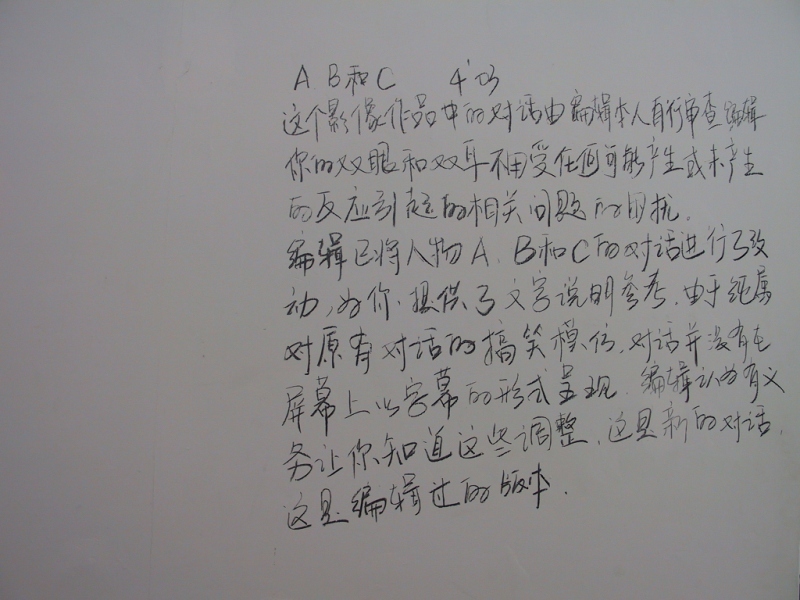 A. B和C 4'03
这个影像作品中的对话由编辑本人自行审查编辑
你的双眼和双耳不用受任何可能产生或未产生
的反应引起的相关问题的困扰.
编辑已将人物A. B和C的对话进行了改
动,为你.提供了文字说明参考.由于纯属
对原有对话的搞笑模仿.对话并没有在
屏幕上以字幕的形式呈现.编辑认为有义
务让你知道这些调整.这是新的对话.
这是编辑过的版本.